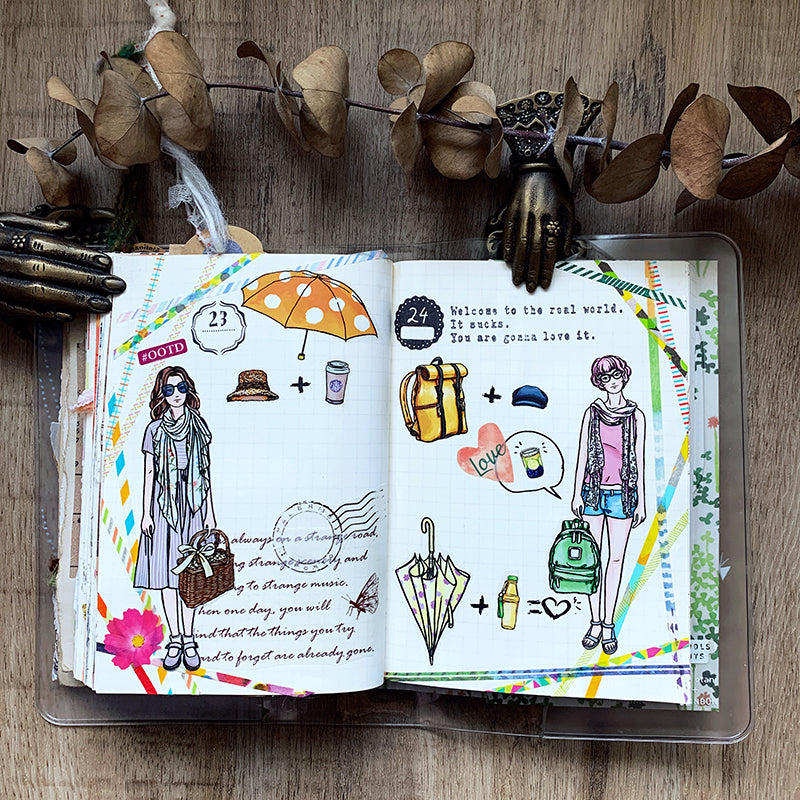 23
#OOTD
always on a strange road,
strange scenery and
to strange music.
hen one day, you will
ind that the things you try
ard to forget are already gone.
24
Welcome to the real world.
It sucks.
You are gonna love it.
Love
+
+
+
=